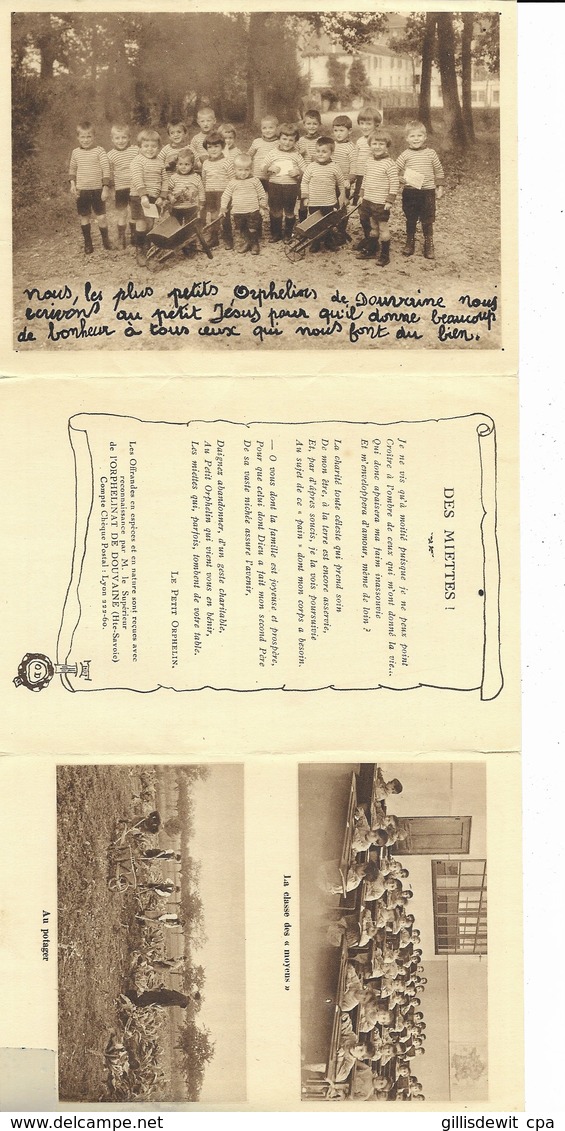 Nous, les plus petits Orphelins de Douvaine nous
écrivons au petit Jésus pour qu'il donne beaucoup
de bonheur à tous ceux qui nous font du bien.
DES MIETTES !
Je ne vis qu'à moitié puisque je ne peux point
Croître à l'ombre de ceux qui m'ont donné la vie...
Qui donc apaisera ma faim inassouvie
Et m'enveloppera d'amour, même de loin ?
La charité toute céleste qui prend soin
De mon être, à la terre est encore asservie,
Et, par d'âpres soucis, je la vois poursuivie
Au sujet de ce « pain » dont mon corps a besoin.
— O vous dont la famille est joyeuse et prospère,
Pour que celui dont Dieu a fait mon second Père
De sa vaste nichée assure l'avenir,
Daignez abandonner, d'un geste charitable,
Au Petit Orphelin qui vient vous en bénir,
Les miettes qui, parfois, tombent de votre table.
LE PETIT ORPHELIN.
Les Offrandes en espèces et en nature sont reçues avec
reconnaissance par M. le Supérieur
de l'ORPHELINAT DE DOUVAINE (Hte-Savoie)
Compte Chèque Postal : Lyon 222-60.
OD
La classe des « moyens »
Au potager
gillisdewit cpa